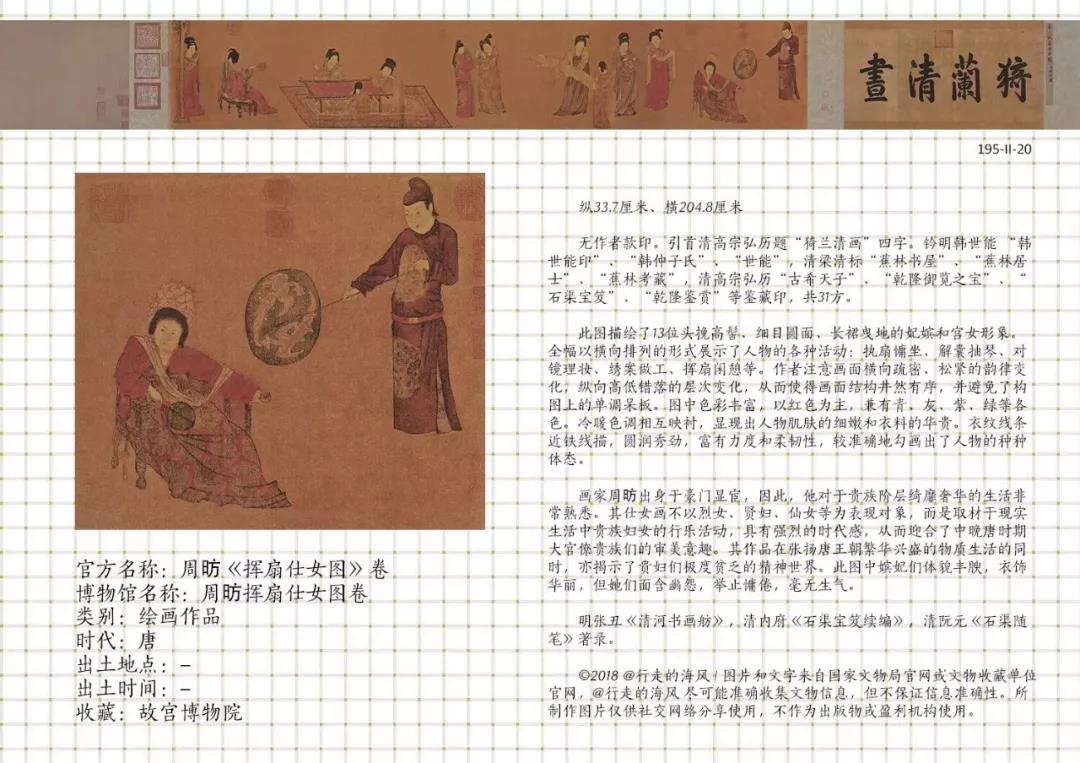 猗蘭清畫
195-II-20
纵33.7厘米、横204.8厘米
无作者款印。引首清高宗弘历题“猗兰清画”四字。钤明韩世能 “韩
世能印”、“韩仲子氏”、“世能”，清梁清标“蕉林书屋”、“蕉林居
士”、“蕉林考藏”，清高宗弘历“古希天子”、“乾隆御览之宝”、“
石渠宝笈”、“乾隆鉴赏”等鉴藏印，共31方。
此图描绘了13位头挽高髻、细目圆面、长裙曳地的妃嫔和宫女形象。
全幅以横向排列的形式展示了人物的各种活动：执扇慵坐、解囊抽琴、对
镜理妆、绣案做工、挥扇闲憩等。作者注意画面横向疏密、松紧的韵律变
化，纵向高低错落的层次变化，从而使得画面结构井然有序，并避免了构
图上的单调呆板。图中色彩丰富，以红色为主，兼有青、灰、紫、绿等各
色。冷暖色调相互映衬，显现出人物肌肤的细嫩和衣料的华贵。衣纹线条
近铁线描，圆润秀劲，富有力度和柔韧性，较准确地勾画出了人物的种种
体态。
画家周昉出身于豪门显宦，因此，他对于贵族阶层绮靡奢华的生活非
常熟悉。其仕女画不以烈女、贤妇、仙女等为表现对象，而是取材于现实
生活中贵族妇女的行乐活动，具有强烈的时代感，从而迎合了中晚唐时期
大官僚贵族们的审美意趣。其作品在张扬唐王朝繁华兴盛的物质生活的同
时，亦揭示了贵妇们极度贫乏的精神世界。此图中嫔妃们体貌丰腴，衣饰
华丽，但她们面含幽怨，举止慵倦，毫无生气。
明张丑《清河书画舫》，清内府《石渠宝笈续编》，清阮元《石渠随
笔》著录。
©2018 @行走的海风 / 图片和文字来自国家文物局官网或文物收藏单位
官网，@行走的海风 尽可能准确收集文物信息，但不保证信息准确性。所
制作图片仅供社交网络分享使用，不作为出版物或盈利机构使用。
官方名称：周昉《挥扇仕女图》卷
博物馆名称：周昉挥扇仕女图卷
类别：绘画作品
时代：唐
出土地点：–
出土时间：–
收藏：故宫博物院